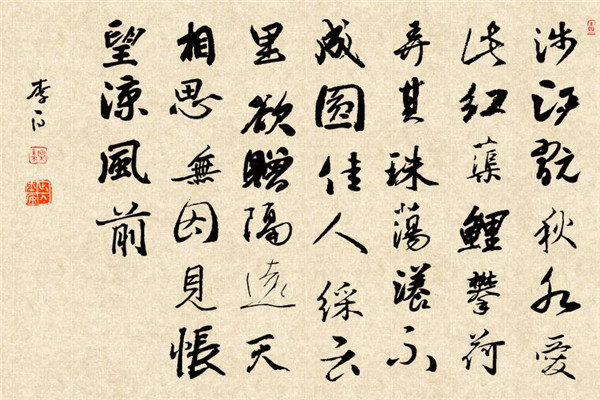 涉江翫秋水愛
此紅蕖鯉攀荷
弄其珠蕩漾不
成圓佳人綵云
里欲贈隔遠天
相思無因見悵
望涼風前
李白